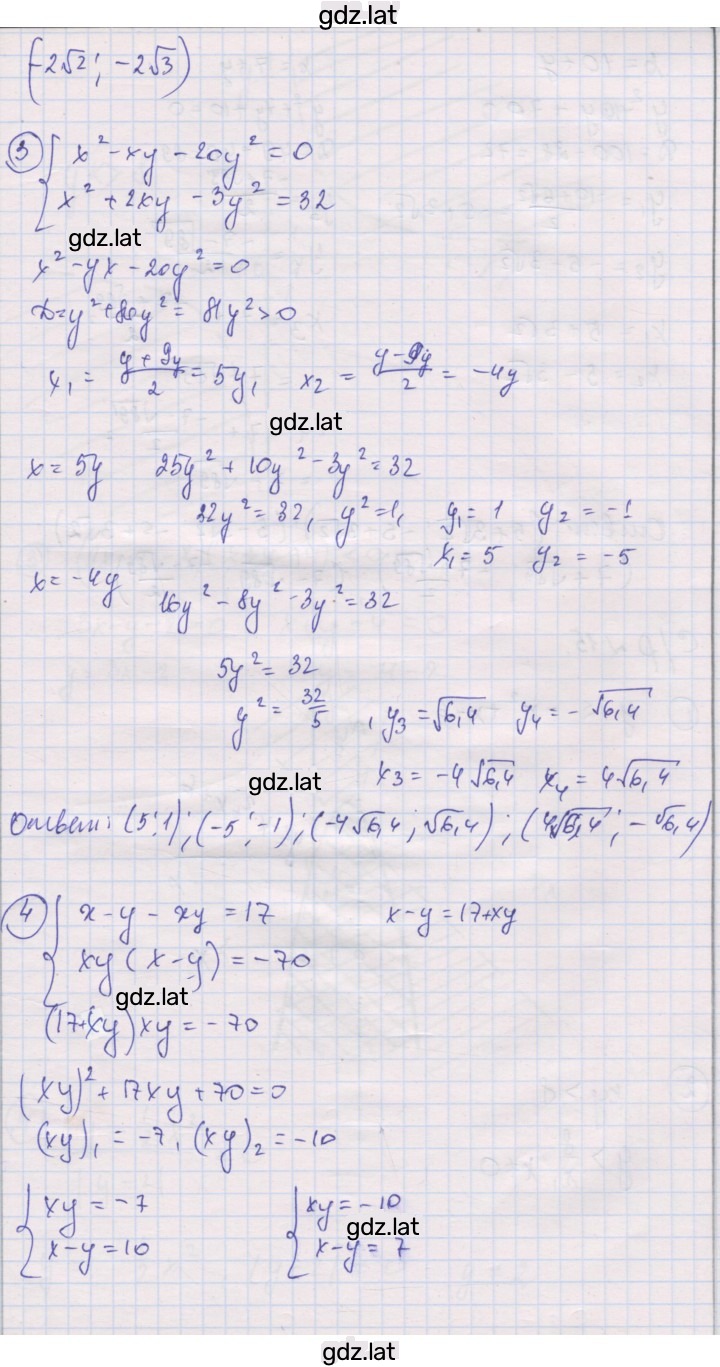 gdz.lat
(-2√2; -2√3)
③ { x² - xy - 20y² = 0
x² + 2xy - 3y² = 32
gdz.lat
x² - yx - 20y² = 0
D = y² + 80y² = 81y² > 0
x₁ = (y + 9y)/2 = 5y, x₂ = (y - 9y)/2 = -4y
gdz.lat
x = 5y 25y² + 10y² - 3y² = 32
32y² = 32, y² = 1, y₁ = 1 y₂ = -1
x₁ = 5 y₂ = -5
x = -4y 16y² - 8y² - 3y² = 32
5y² = 32
y² = 32/5, y₃ = √6,4 y₄ = -√6,4
gdz.lat
x₃ = -4√6,4 x₄ = 4√6,4
Ответ: (5; 1); (-5; -1); (-4√6,4; √6,4); (4√6,4; -√6,4)
④ { x - y - xy = 17 x - y = 17 + xy
xy(x - y) = -70
gdz.lat
(17 + xy)xy = -70
(xy)² + 17xy + 70 = 0
(xy)₁ = -7, (xy)₂ = -10
{ xy = -7 { xy = -10
gdz.lat
x - y = 10 x - y = 7
gdz.lat